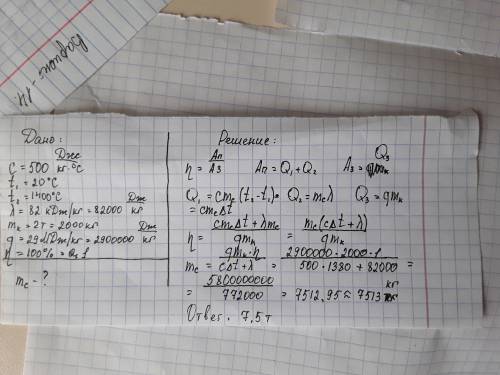 Вариант - 14.
Дано:
c = 500 Дж/кг·°C
t₁ = 20°C
t₂ = 1400°C
λ = 82 кДж/кг = 82000 Дж/кг
mₖ = 2т = 2000кг
q = 29 МДж/кг = 2900000 Дж/кг
η = 100% = 1
m_c - ?
Решение:
η = Aп/Aз Aп = Q₁ + Q₂ Aз = Q₃
Q₁ = cm_c (t₂ - t₁) = Q₂ = m_cλ Q₃ = qmₖ
= cm_cΔt
η = (cm_cΔt + λm_c)/(qmₖ) = (m_c(cΔt + λ))/(qmₖ)
m_c = (qmₖ·η)/(cΔt + λ) = (2900000·2000·1)/(500·1380 + 82000) =
= 5800000000/772000 = 7512,95 ≈ 7513 кг
Ответ. 7,5 т